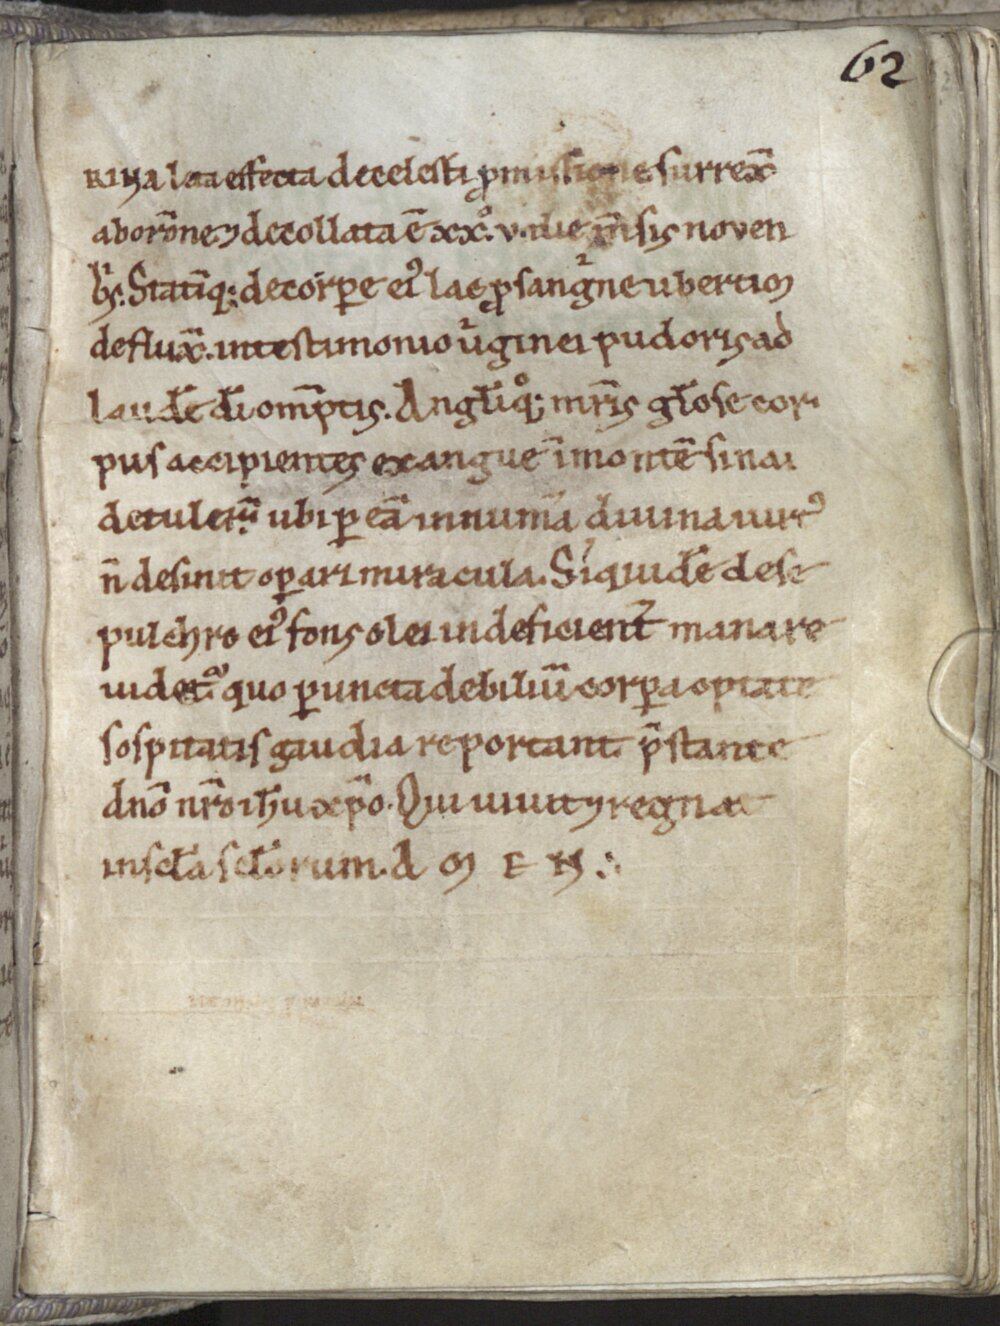 62
RINA leta effecta de celesti ꝓmissione surrex̄
ab or̄one ⁊ decollata ē xxº. v. die m̄sis noven
bͬ. Statīq; de corpe eiꝰ lac ꝓ sanguͥne ubertim
deflux̄. in testimonio uͥginei pudoris ad
laudē dī om̄ptis. Angl̄iqº; mr̄is gl̄ose cor
pus accipientes exangue ī montē sinai
detuleruͫ ubi ꝑ eā innum̄a divina virtꝰ
n̄ desinit oꝑari miracula. Siquidē de se
pulchro eiꝰ fons olei indeficient᷑ manare
uidet᷑ quo ꝑuncta debiliū corꝑa optate
sospitatis gaudia reportant p̄stante
dn̄o nr̄o ih̄u xp̄o. Qui uiuit ⁊ regnat
in secl̄a secl̄orum. A M E N